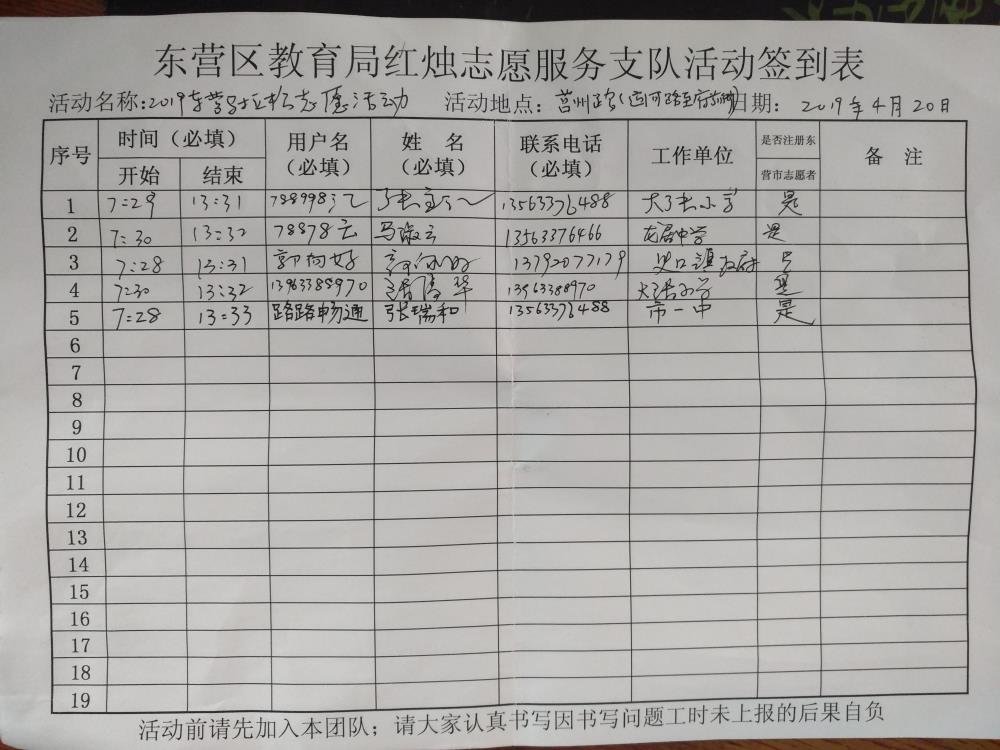 东营区教育局红烛志愿服务支队活动签到表
活动名称:2019东营马拉松志愿活动 活动地点: 莒州路 日期: 2019年4月20日
序号 时间（必填） 用户名（必填） 姓 名（必填） 联系电话（必填） 工作单位 是否注册东营市志愿者 备 注
开始 结束
1 7:29 13:31 13563376488 大张小学 是
2 7:30 13:32 马淑云 13563376466 龙居中学 是
3 7:28 13:31 郭向好 郭向好 13792077179 史口镇政府 是
4 7:30 13:32 13963388970 13963388970 大张小学 是
5 7:28 13:33 路路畅通 张瑞和 13563376488 市一中 是
6
7
8
9
10
11
12
13
14
15
16
17
18
19
活动前请先加入本团队；请大家认真书写因书写问题工时未上报的后果自负